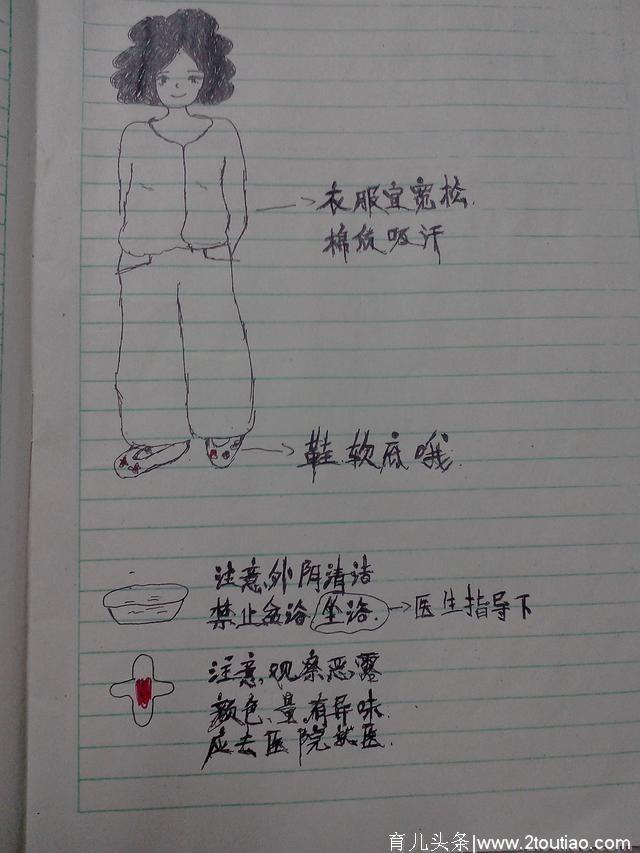 衣服宜宽松.
棉质吸汗
鞋软底哦.
注意外阴清洁
禁止盆浴 坐浴. 医生指导下
注意,观察恶露
颜色、量,有异味.
应去医院就医.
育儿头条|www.2toutiao.com